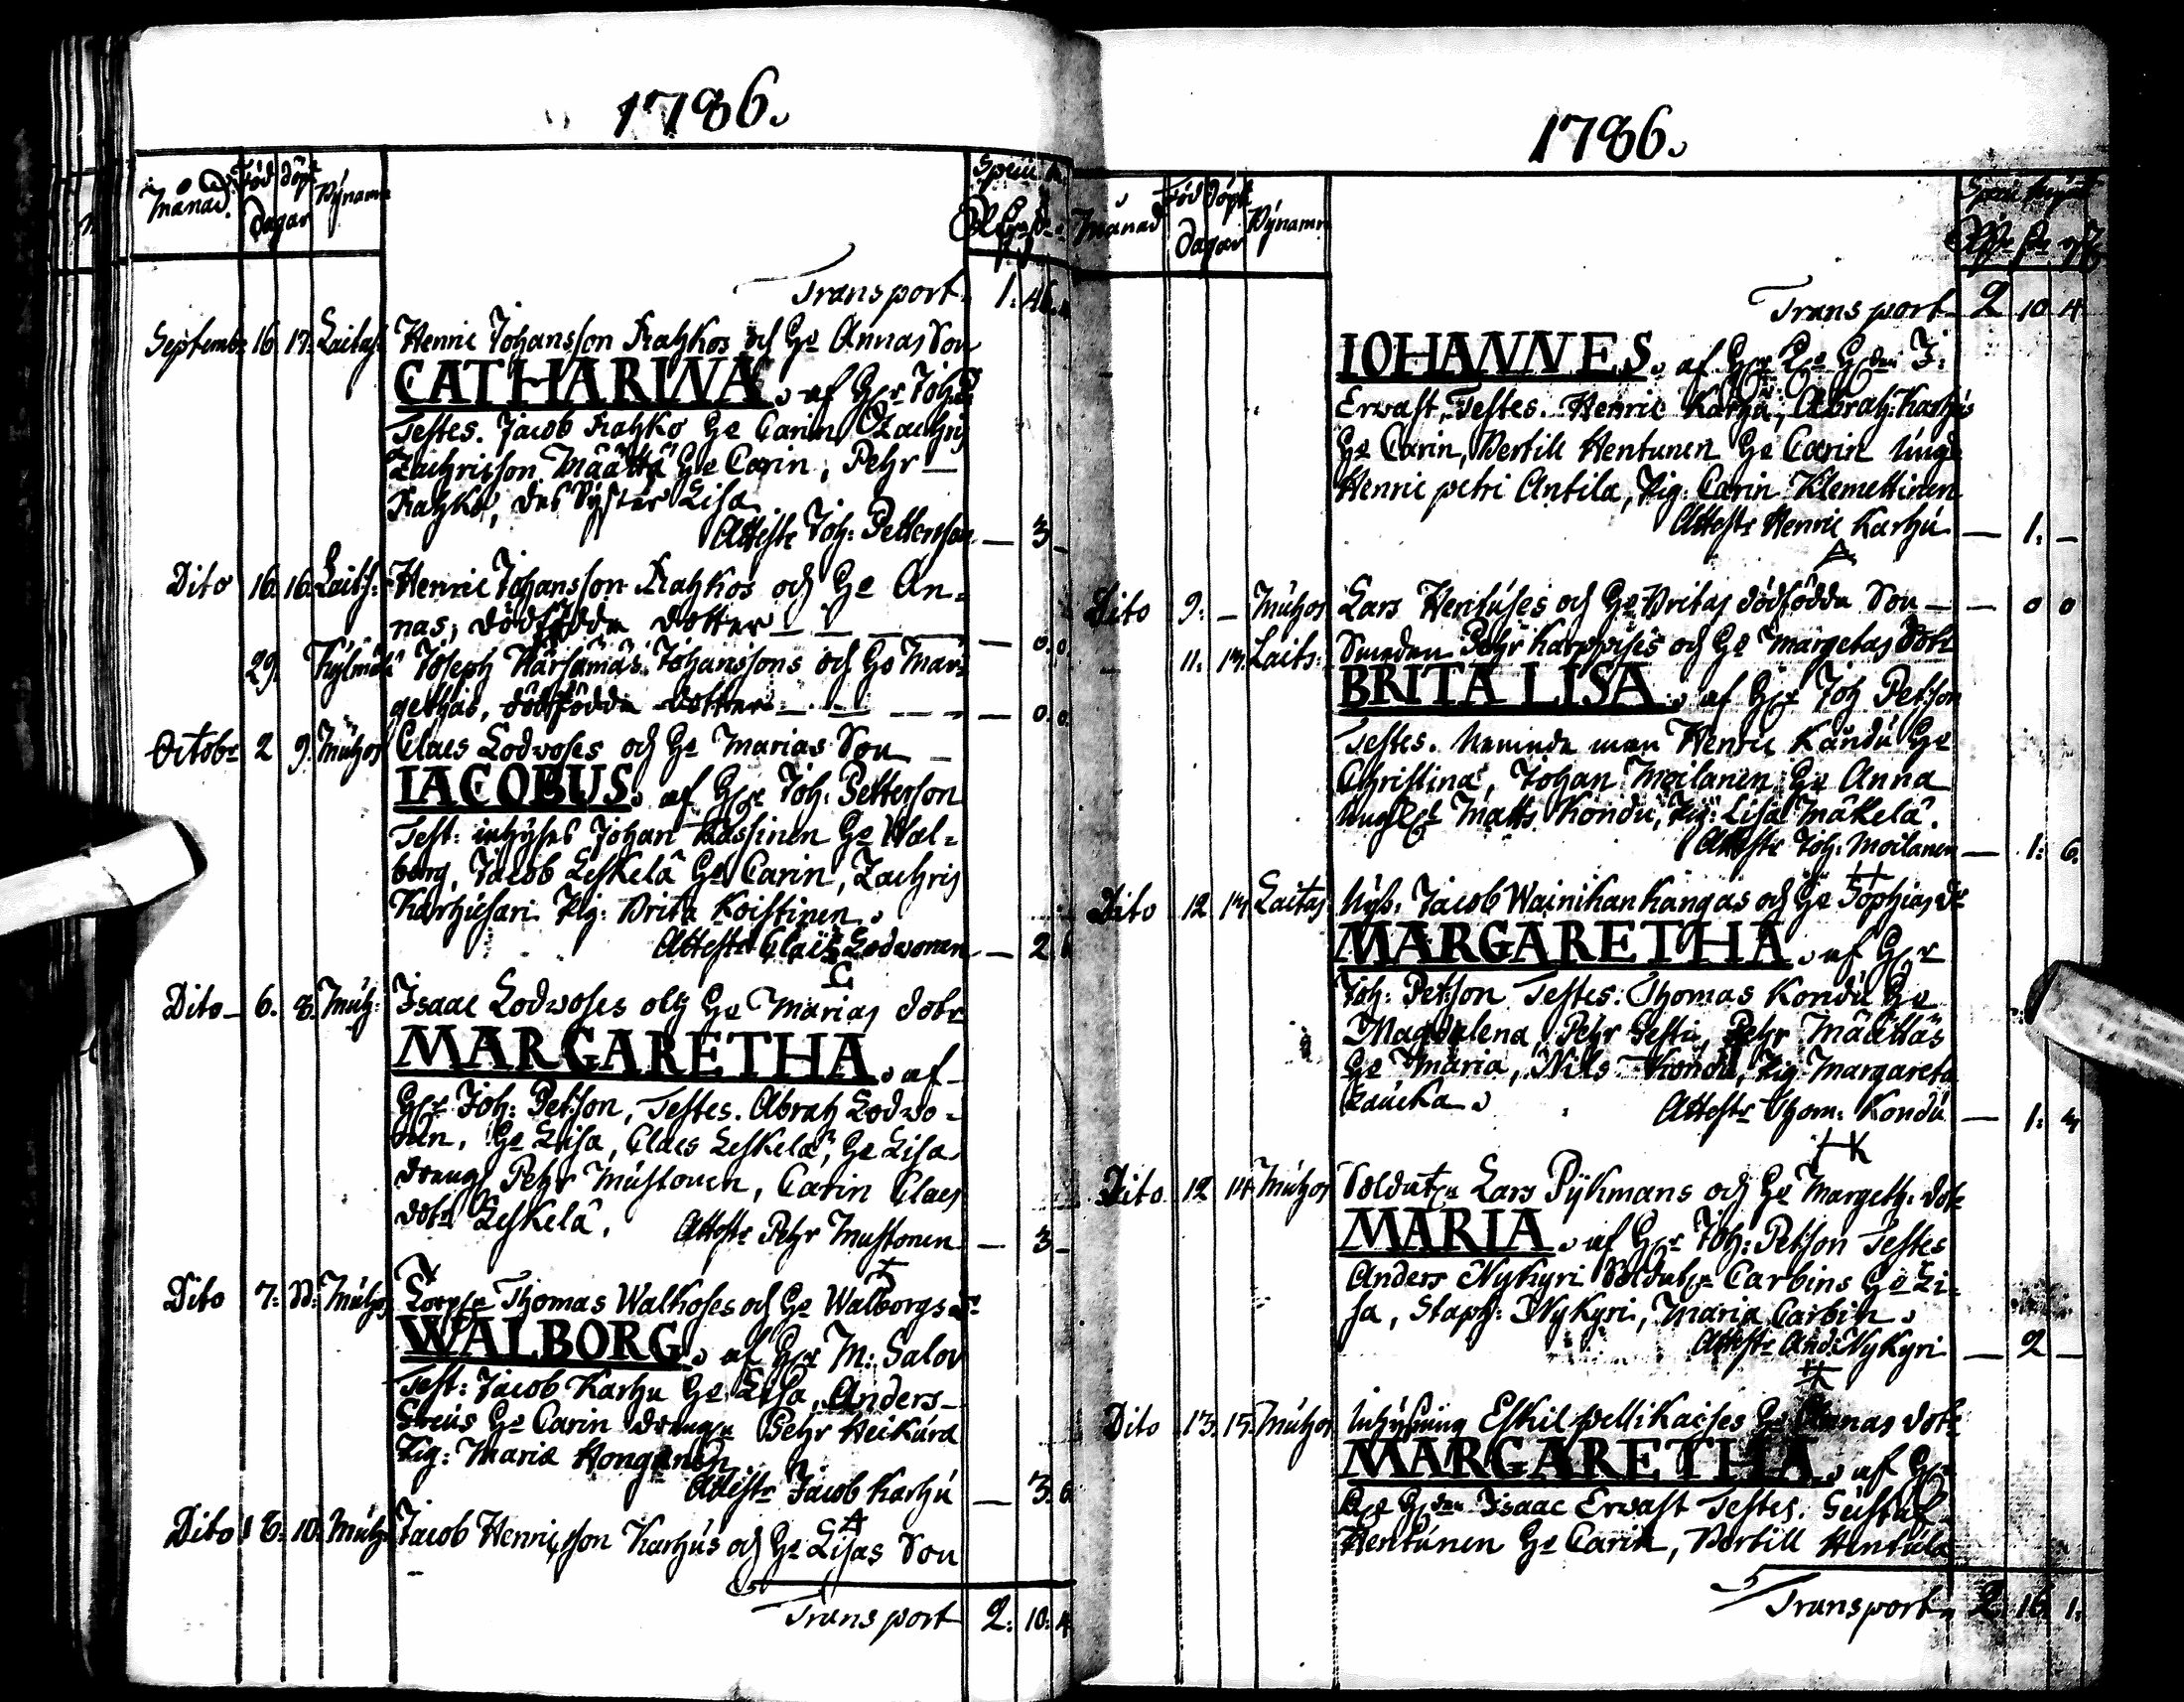 1786.
Månad. Föd döpt Bÿnamn
Dagar
Transport. 1: 46.
Septembr 16 17. Laitas. Henric Johansson Ratzkos och Hs Annas
CATHARINA. af Joh:
Testes. Jacob Ratzko Hs Carin, Zachris
Zachrisson Määttä Hs Carin, Pehr
Ratzko, des Syster Lisa
Attestr Joh: Petterson — 3 —
Dito 16. 16. Laits: Henric Johansson Ratzkos och Hs An-
nas, dödfödda dotter — — — 0. 0.
29. Joseph Härjämäs Johanssons och Hs Mar-
gethas, dödfödda dotter — — 0. 0.
Octobr 2 9. Muhos Claes Lodwoses och Hs Marias Son
IACOBUS. af Joh: Petterson
Test: inhyses Johan Kassinen Hs Wal-
borg, Jacob Leskelä Hs Carin, Zachris
Karhusari Pig: Brita Koistinen.
Attestr Claes Lodwonen — 2
Dito 6. 8. Muh: Isaac Lodwoses och Hs Marias dotr
MARGARETHA. af
Joh: Petson, Testes. Abrah Lodwo-
nen, Hs Lisa, Claes Leskelä, Hs Lisa
dreng Pehr Mustonen, Carin Claes
dotr Leskelä. Attestr Pehr Mustonen — 3 —
Dito 7: Muhos Thomas Walkoses och Hs Walborgs
WALBORG. af M: Salov
Test: Jacob Karhu Hs Lisa, Anders
Hs Carin Pehr Heikura
Pig: Maria Honganen
Attestr Jacob Karhu — 3. 6
Dito 8. 10. Muh: Jacob Henricsson Karhus och Hs Lisas Son
Transport 2: 10. 4
1786.
Månad Föd döpt Bÿnamn
Dagar
Transport 2 10 4
IOHANNES. af J:
Erwast, Testes. Henric Karhu, Abrah: Karhus
Hs Carin, Bertill Hentunen Hs Carin Ung
Henric petri Antila, Pig: Carin Klemettinen
Attestr Henric Karhu — 1. —
Dito 9. — Muhos Lars Hentuses och Hs Britas dödfödda Son — — 0 0
11. 13. Laits: Pehr Karppises och Hs Margetas Dotr
BRITA LISA. af Joh Petson
Testes. Nemnde man Henric Kondu Hs
Christina, Johan Moilanen Hs Anna
Matts Kondu, Pig: Lisa Mäkelä.
Attestr Joh: Moilanen — 1: 6.
Dito 12 14. Laitas Jacob Wainikan kangas och Hs Sophias
MARGARETHA. af
Joh: Petson Testes: Thomas Kondu Hs
Magdalena, Pehr Pehr Määttäs
Hs Maria, Nils Kondu, Pig Margareta
Attestr Thom: Kondu — 1. 4
Dito 12 14 Muhos Soldaten Lars Pÿkmans och Hs Margeth: dotr
MARIA. af Joh: Petson Testes
Anders Nykyri Soldaten Carbins Hs Li-
sa, Staph: Nykyri, Maria Carbin.
Attestr And: Nykyri — 2 —
Dito 13. 15. Muhos Eskil pellikaises Hs Annas dotr
MARGARETHA. af
Isaac Erwast Testes. Gustaf
Hentunen Hs Carin, Bertill Hentula
Transport 2. 16. 1.